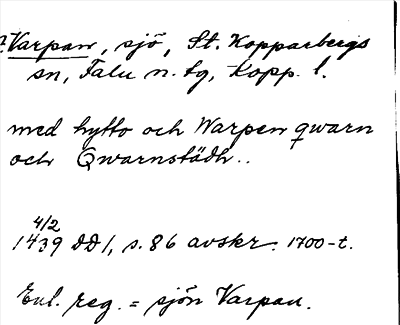 Varpan, sjö, St. Kopparbergs
sn, Falu n. tg, Kopp. l.
med hytto och Warpen qwarn
och Qwarnstädh..
4/2
1439 DD 1, s. 86 avskr. 1700-t.
Enl. reg. = sjön Varpan.